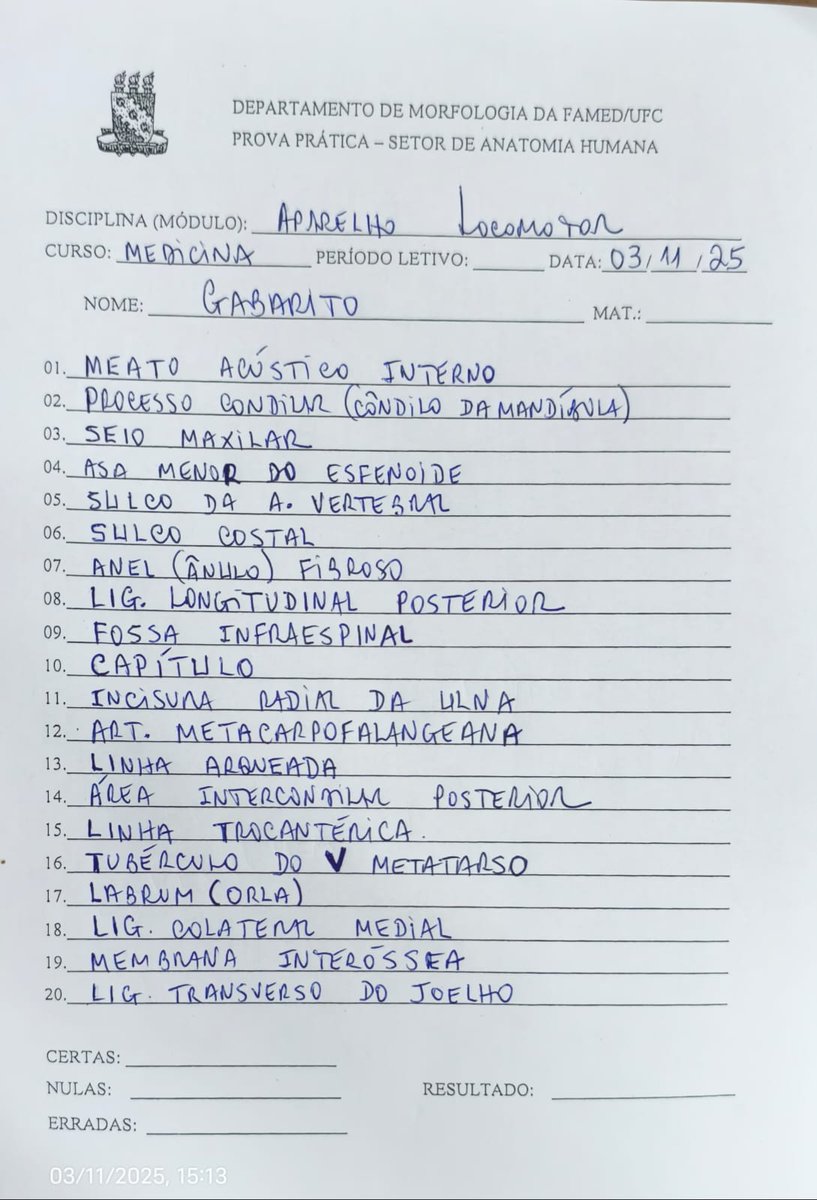 DEPARTAMENTO DE MORFOLOGIA DA FAMED/UFC
PROVA PRÁTICA – SETOR DE ANATOMIA HUMANA
DISCIPLINA (MÓDULO): APARELHO LOCOMOTOR
CURSO: MEDICINA PERÍODO LETIVO: DATA: 03/11/25
NOME: GABARITO MAT.:
01. MEATO ACÚSTICO INTERNO
02. PROCESSO CONDILAR (CÔNDILO DA MANDÍBULA)
03. SEIO MAXILAR
04. ASA MENOR DO ESFENOIDE
05. SULCO DA A. VERTEBRAL
06. SULCO COSTAL
07. ANEL (ÂNULO) FIBROSO
08. LIG. LONGITUDINAL POSTERIOR
09. FOSSA INFRAESPINAL
10. CAPÍTULO
11. INCISURA RADIAL DA ULNA
12. ART. METACARPOFALANGEANA
13. LINHA ARQUEADA
14. ÁREA INTERCONDILAR POSTERIOR
15. LINHA TROCANTÉRICA.
16. TUBÉRCULO DO V METATARSO
17. LABRUM (ORLA)
18. LIG. COLATERAL MEDIAL
19. MEMBRANA INTERÓSSEA
20. LIG. TRANSVERSO DO JOELHO
CERTAS:
NULAS: RESULTADO:
ERRADAS:
03/11/2025, 15:13